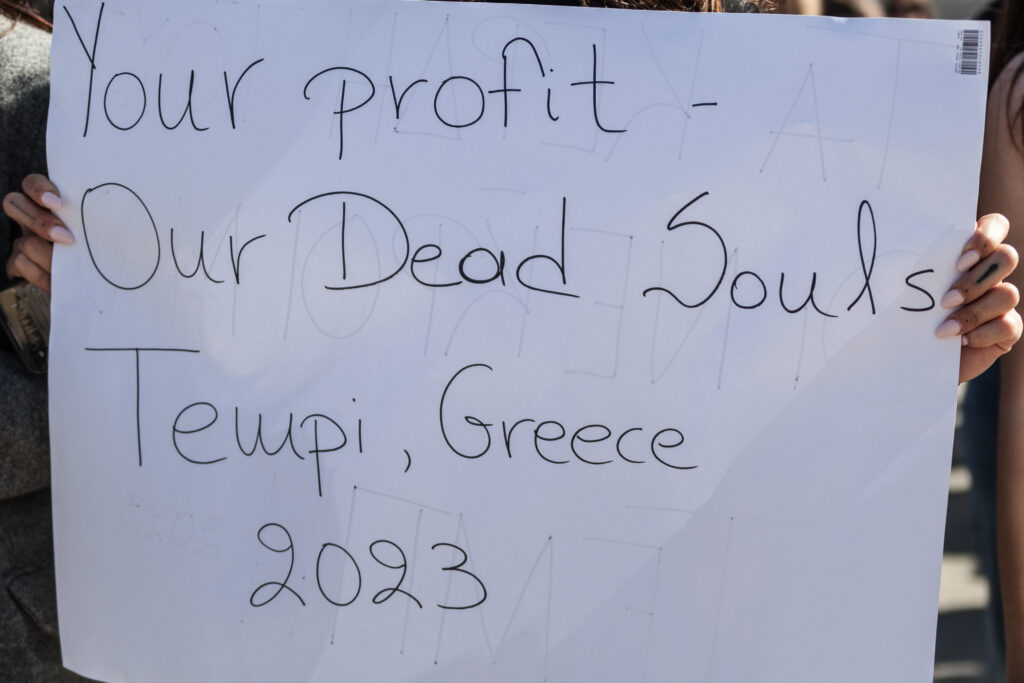 Your profit -
Our Dead Souls
Tempi, Greece
2023